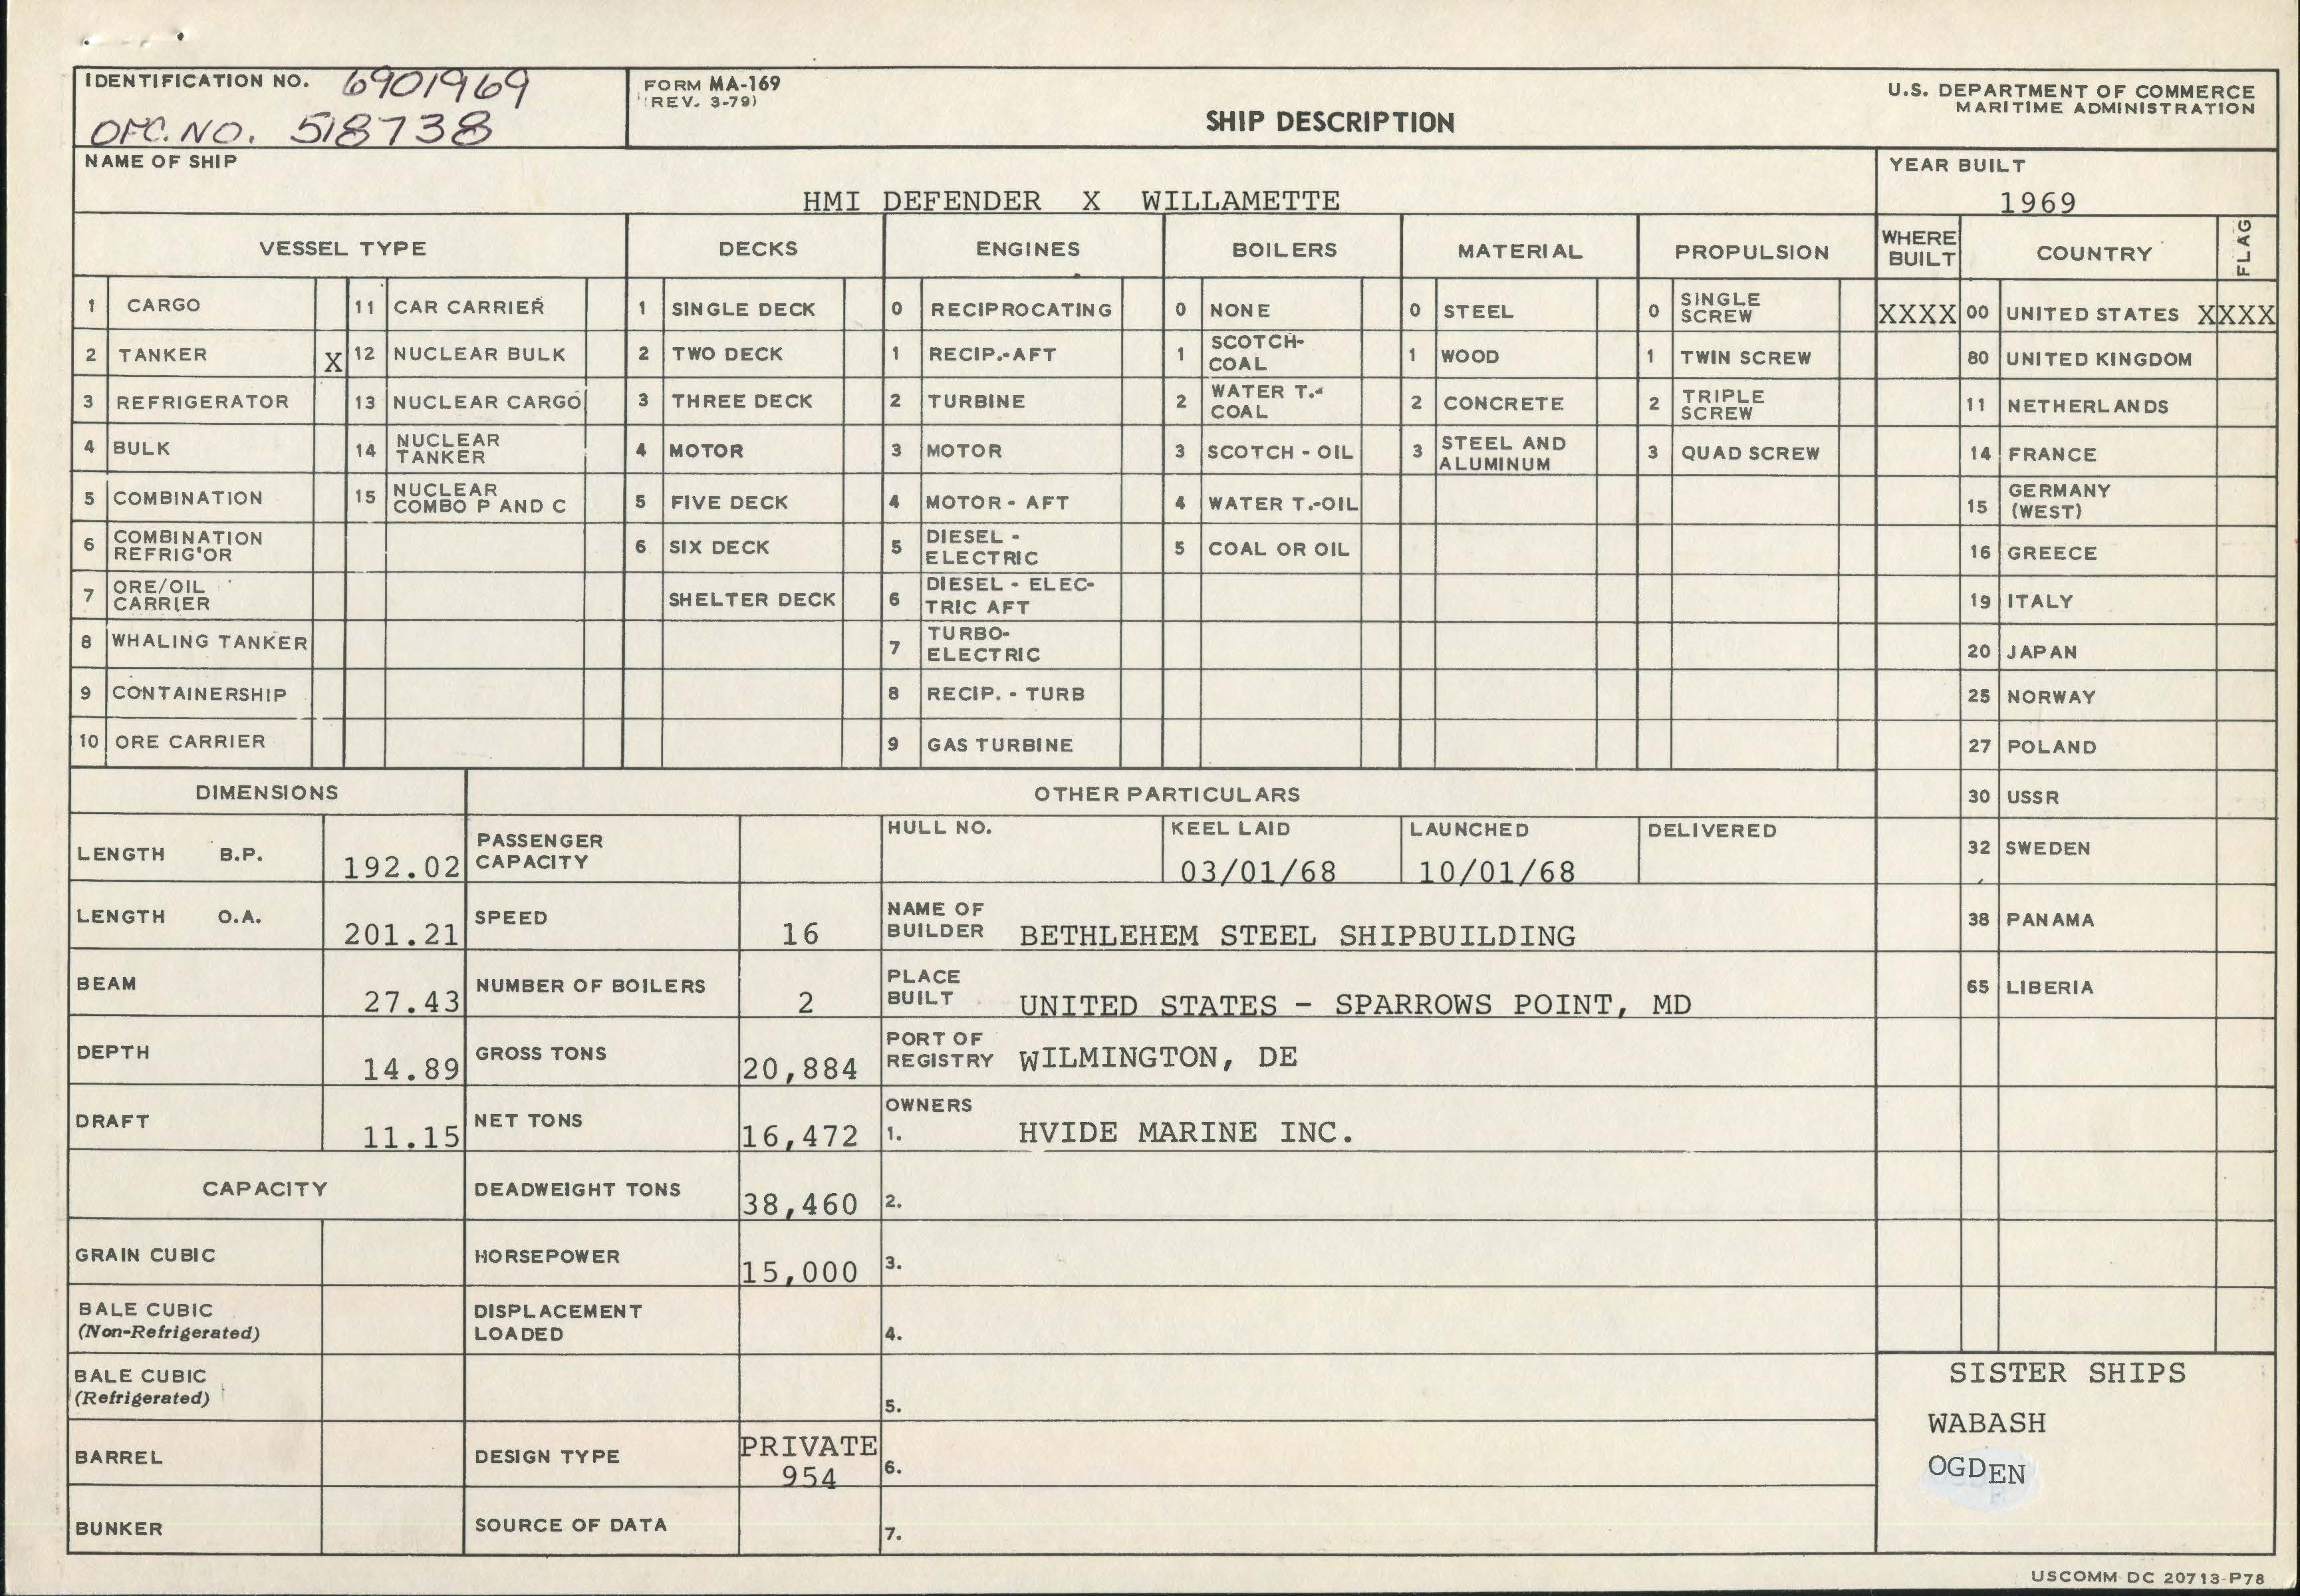 IDENTIFICATION NO. 6901969
OFC. NO. 518738
FORM MA-169
(REV. 3-79)
SHIP DESCRIPTION
U.S. DEPARTMENT OF COMMERCE
MARITIME ADMINISTRATION
NAME OF SHIP
HMI DEFENDER X WILLAMETTE
YEAR BUILT
1969
VESSEL TYPE DECKS ENGINES BOILERS MATERIAL PROPULSION WHERE BUILT COUNTRY FLAG
1 CARGO 11 CAR CARRIER 1 SINGLE DECK 0 RECIPROCATING 0 NONE 0 STEEL 0 SINGLE SCREW XXXX 00 UNITED STATES XXXX
2 TANKER X 12 NUCLEAR BULK 2 TWO DECK 1 RECIP.-AFT 1 SCOTCH-COAL 1 WOOD 1 TWIN SCREW 80 UNITED KINGDOM
3 REFRIGERATOR 13 NUCLEAR CARGO 3 THREE DECK 2 TURBINE 2 WATER T.-COAL 2 CONCRETE 2 TRIPLE SCREW 11 NETHERLANDS
4 BULK 14 NUCLEAR TANKER 4 MOTOR 3 MOTOR 3 SCOTCH - OIL 3 STEEL AND ALUMINUM 3 QUAD SCREW 14 FRANCE
5 COMBINATION 15 NUCLEAR COMBO P AND C 5 FIVE DECK 4 MOTOR - AFT 4 WATER T.-OIL 15 GERMANY (WEST)
6 COMBINATION REFRIG'OR 6 SIX DECK 5 DIESEL - ELECTRIC 5 COAL OR OIL 16 GREECE
7 ORE/OIL CARRIER SHELTER DECK 6 DIESEL - ELECTRIC AFT 19 ITALY
8 WHALING TANKER 7 TURBO-ELECTRIC 20 JAPAN
9 CONTAINERSHIP 8 RECIP. - TURB 25 NORWAY
10 ORE CARRIER 9 GAS TURBINE 27 POLAND
DIMENSIONS OTHER PARTICULARS 30 USSR
LENGTH B.P. 192.02 PASSENGER CAPACITY HULL NO. KEEL LAID 03/01/68 LAUNCHED 10/01/68 DELIVERED 32 SWEDEN
LENGTH O.A. 201.21 SPEED 16 NAME OF BUILDER BETHLEHEM STEEL SHIPBUILDING 38 PANAMA
BEAM 27.43 NUMBER OF BOILERS 2 PLACE BUILT UNITED STATES - SPARROWS POINT, MD 65 LIBERIA
DEPTH 14.89 GROSS TONS 20,884 PORT OF REGISTRY WILMINGTON, DE
DRAFT 11.15 NET TONS 16,472 OWNERS 1. HVIDE MARINE INC.
CAPACITY DEADWEIGHT TONS 38,460 2.
GRAIN CUBIC HORSEPOWER 15,000 3.
BALE CUBIC (Non-Refrigerated) DISPLACEMENT LOADED 4.
BALE CUBIC (Refrigerated) 5.
BARREL DESIGN TYPE PRIVATE 954 6.
BUNKER SOURCE OF DATA 7.
SISTER SHIPS
WABASH
OGDEN
USCOMM DC 20713-P78